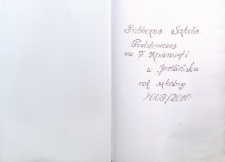 Publiczna Szkoła
Podstawowa
im. T. Kościuszki
w
rok szkolny
2009/2010